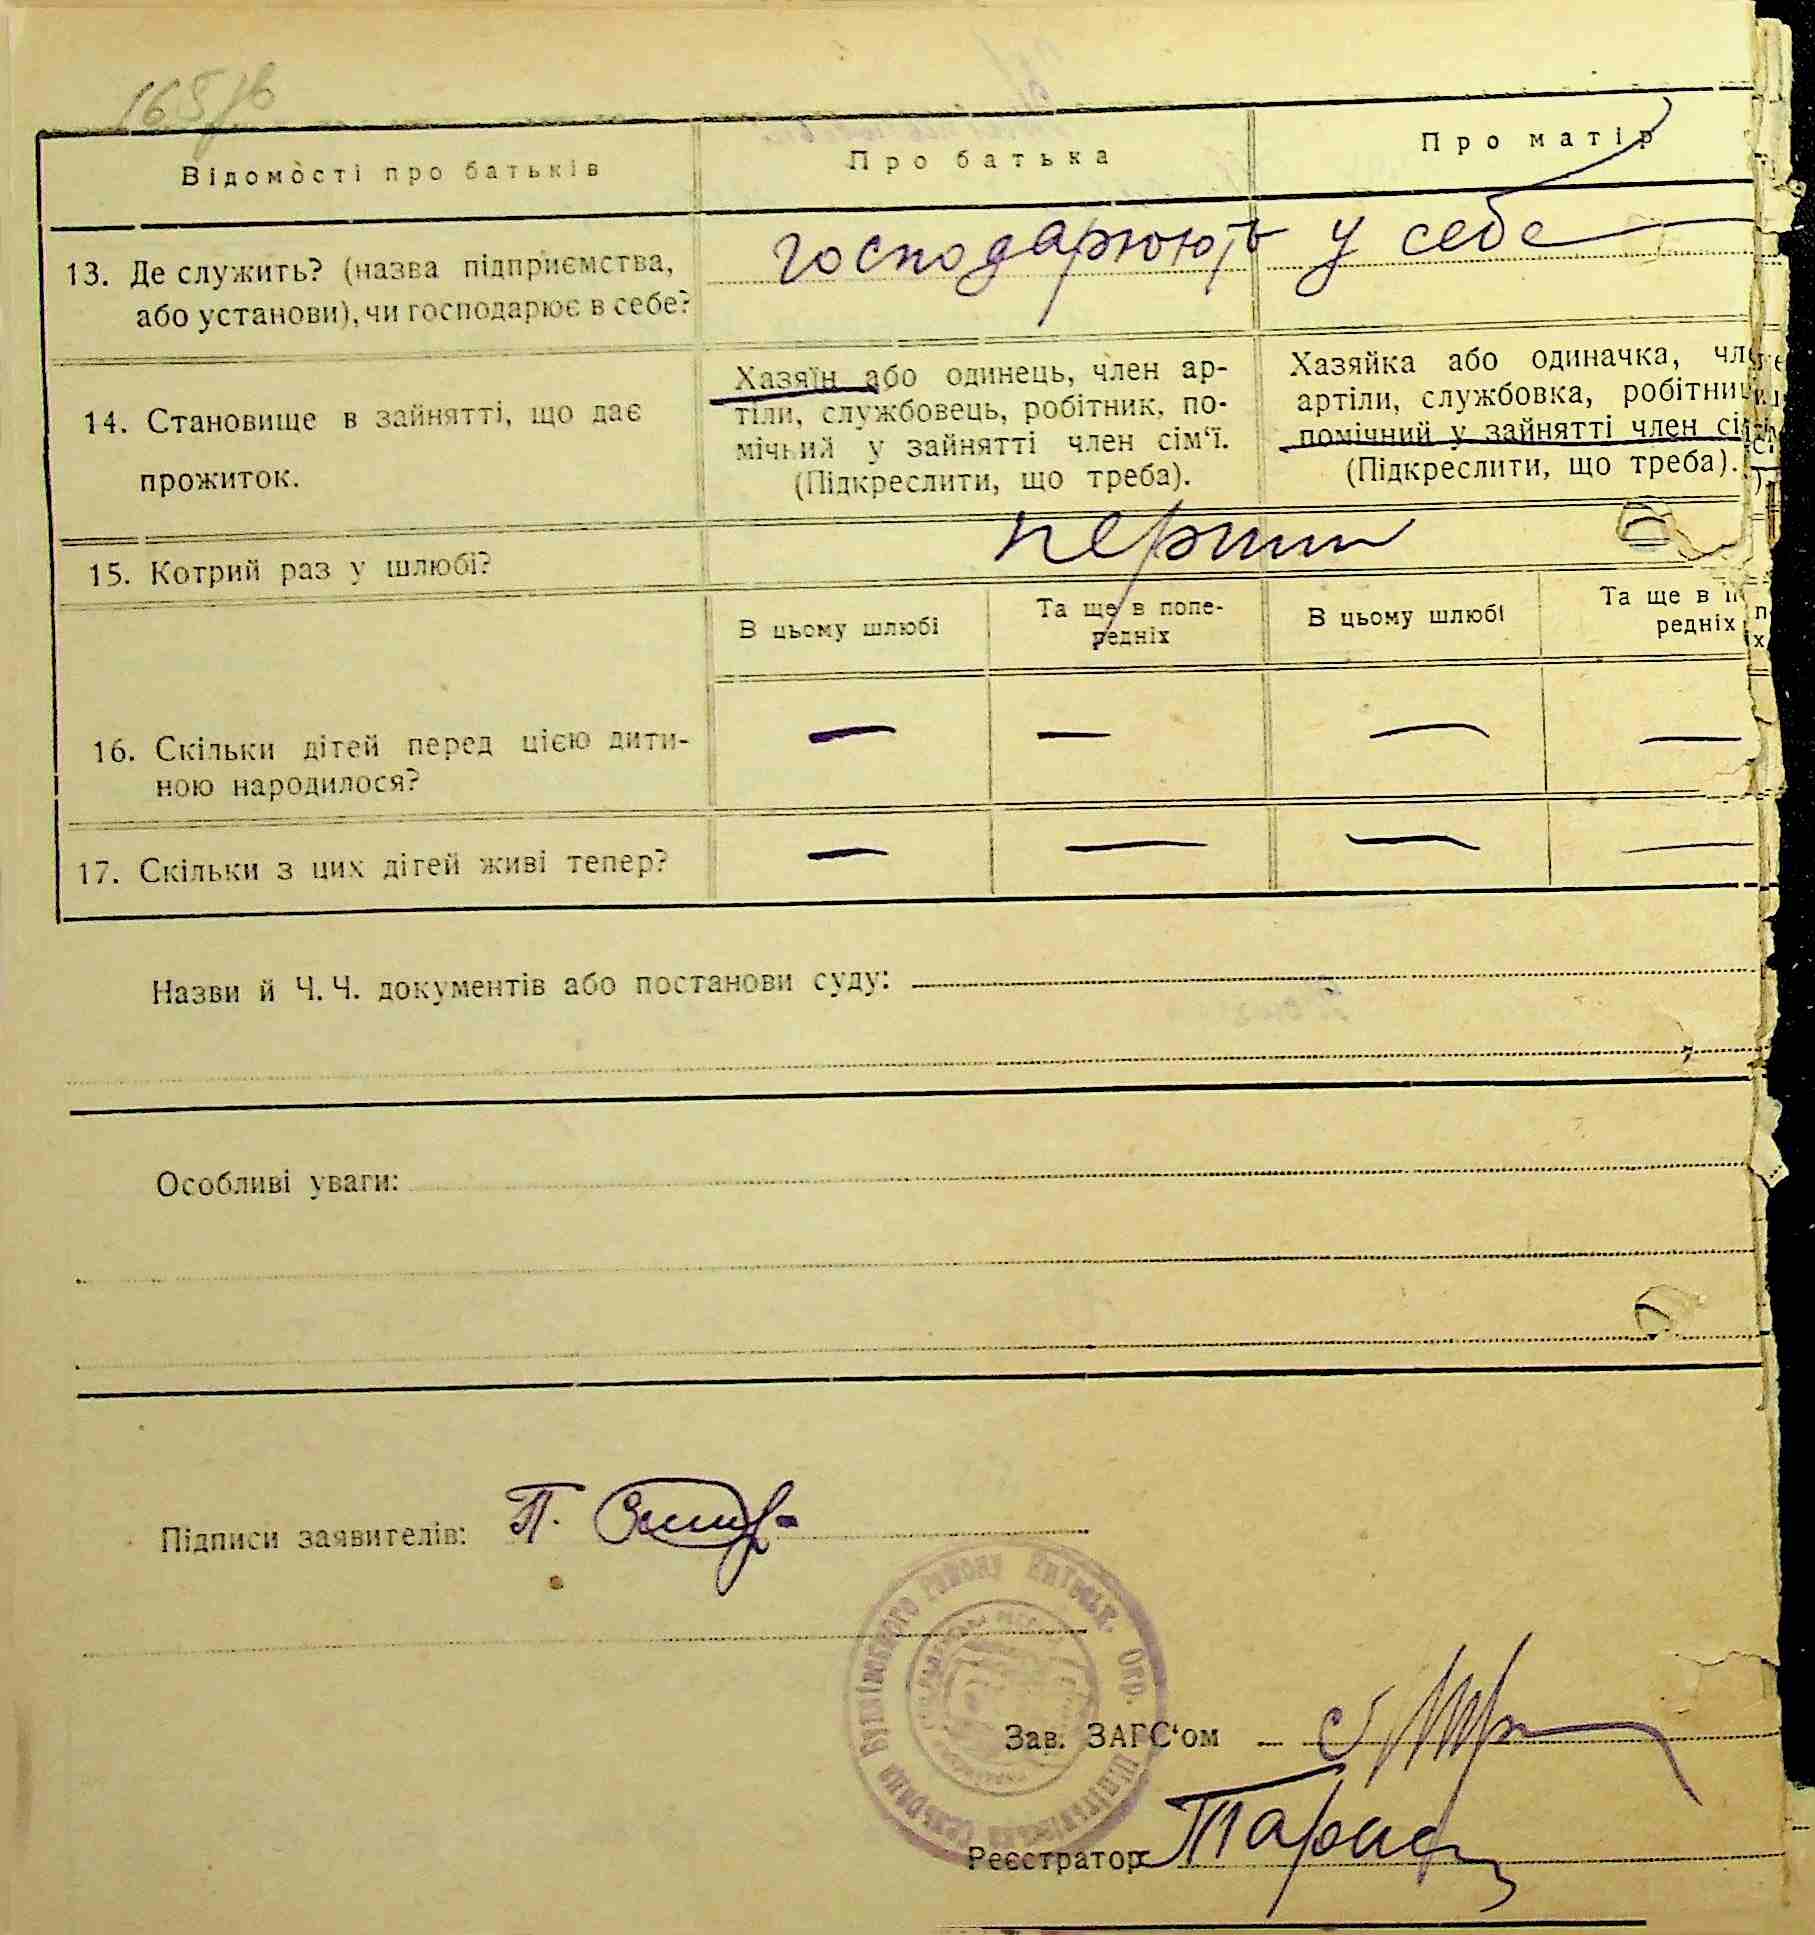 165/в
Відомості про батьків
Про батька
Про матір
13. Де служить? (назва підприємства,
або установи), чи господарює в себе?
господарюють у себе
14. Становище в зайнятті, що дає
прожиток.
Хазяїн або одинець, член ар-
тіли, службовець, робітник, по-
мічний у зайнятті член сім‘ї.
(Підкреслити, що треба).
Хазяйка або одиначка, чле
артіли, службовка, робітниц
помічний у зайнятті член сі
(Підкреслити, що треба).
15. Котрий раз у шлюбі?
перший
В цьому шлюбі
Та ще в попе-
редніх
В цьому шлюбі
Та ще в п
редніх
16. Скільки дітей перед цією дити-
ною народилося?
— — — —
17. Скільки з цих дітей живі тепер?
— — — —
Назви й Ч. Ч. документів або постанови суду:
Особливі уваги:
Підписи заявителів: П.
району Житомирськ. Окр.
Зав. ЗАГС‘ом
Реєстратор